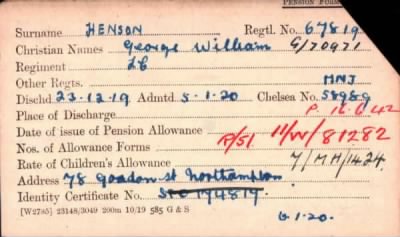 PENSION FORM
Surname HENSON Regtl. No. 67819
Christian Names George William G/70971
Regiment LC
Other Regts. MNJ
Dischd 23-12-19 Admtd 5.1.20 Chelsea No. 58989
Place of Discharge P. 16.6.42
Date of issue of Pension Allowance
Nos. of Allowance Forms P/51 11/W/81282
Rate of Children's Allowance 7/MH/1424.
Address 78 Gordon St Northampton
Identity Certificate No. 194819.
[W2785] 23148/3049 200m 10/19 585 G & S 6.1.20.